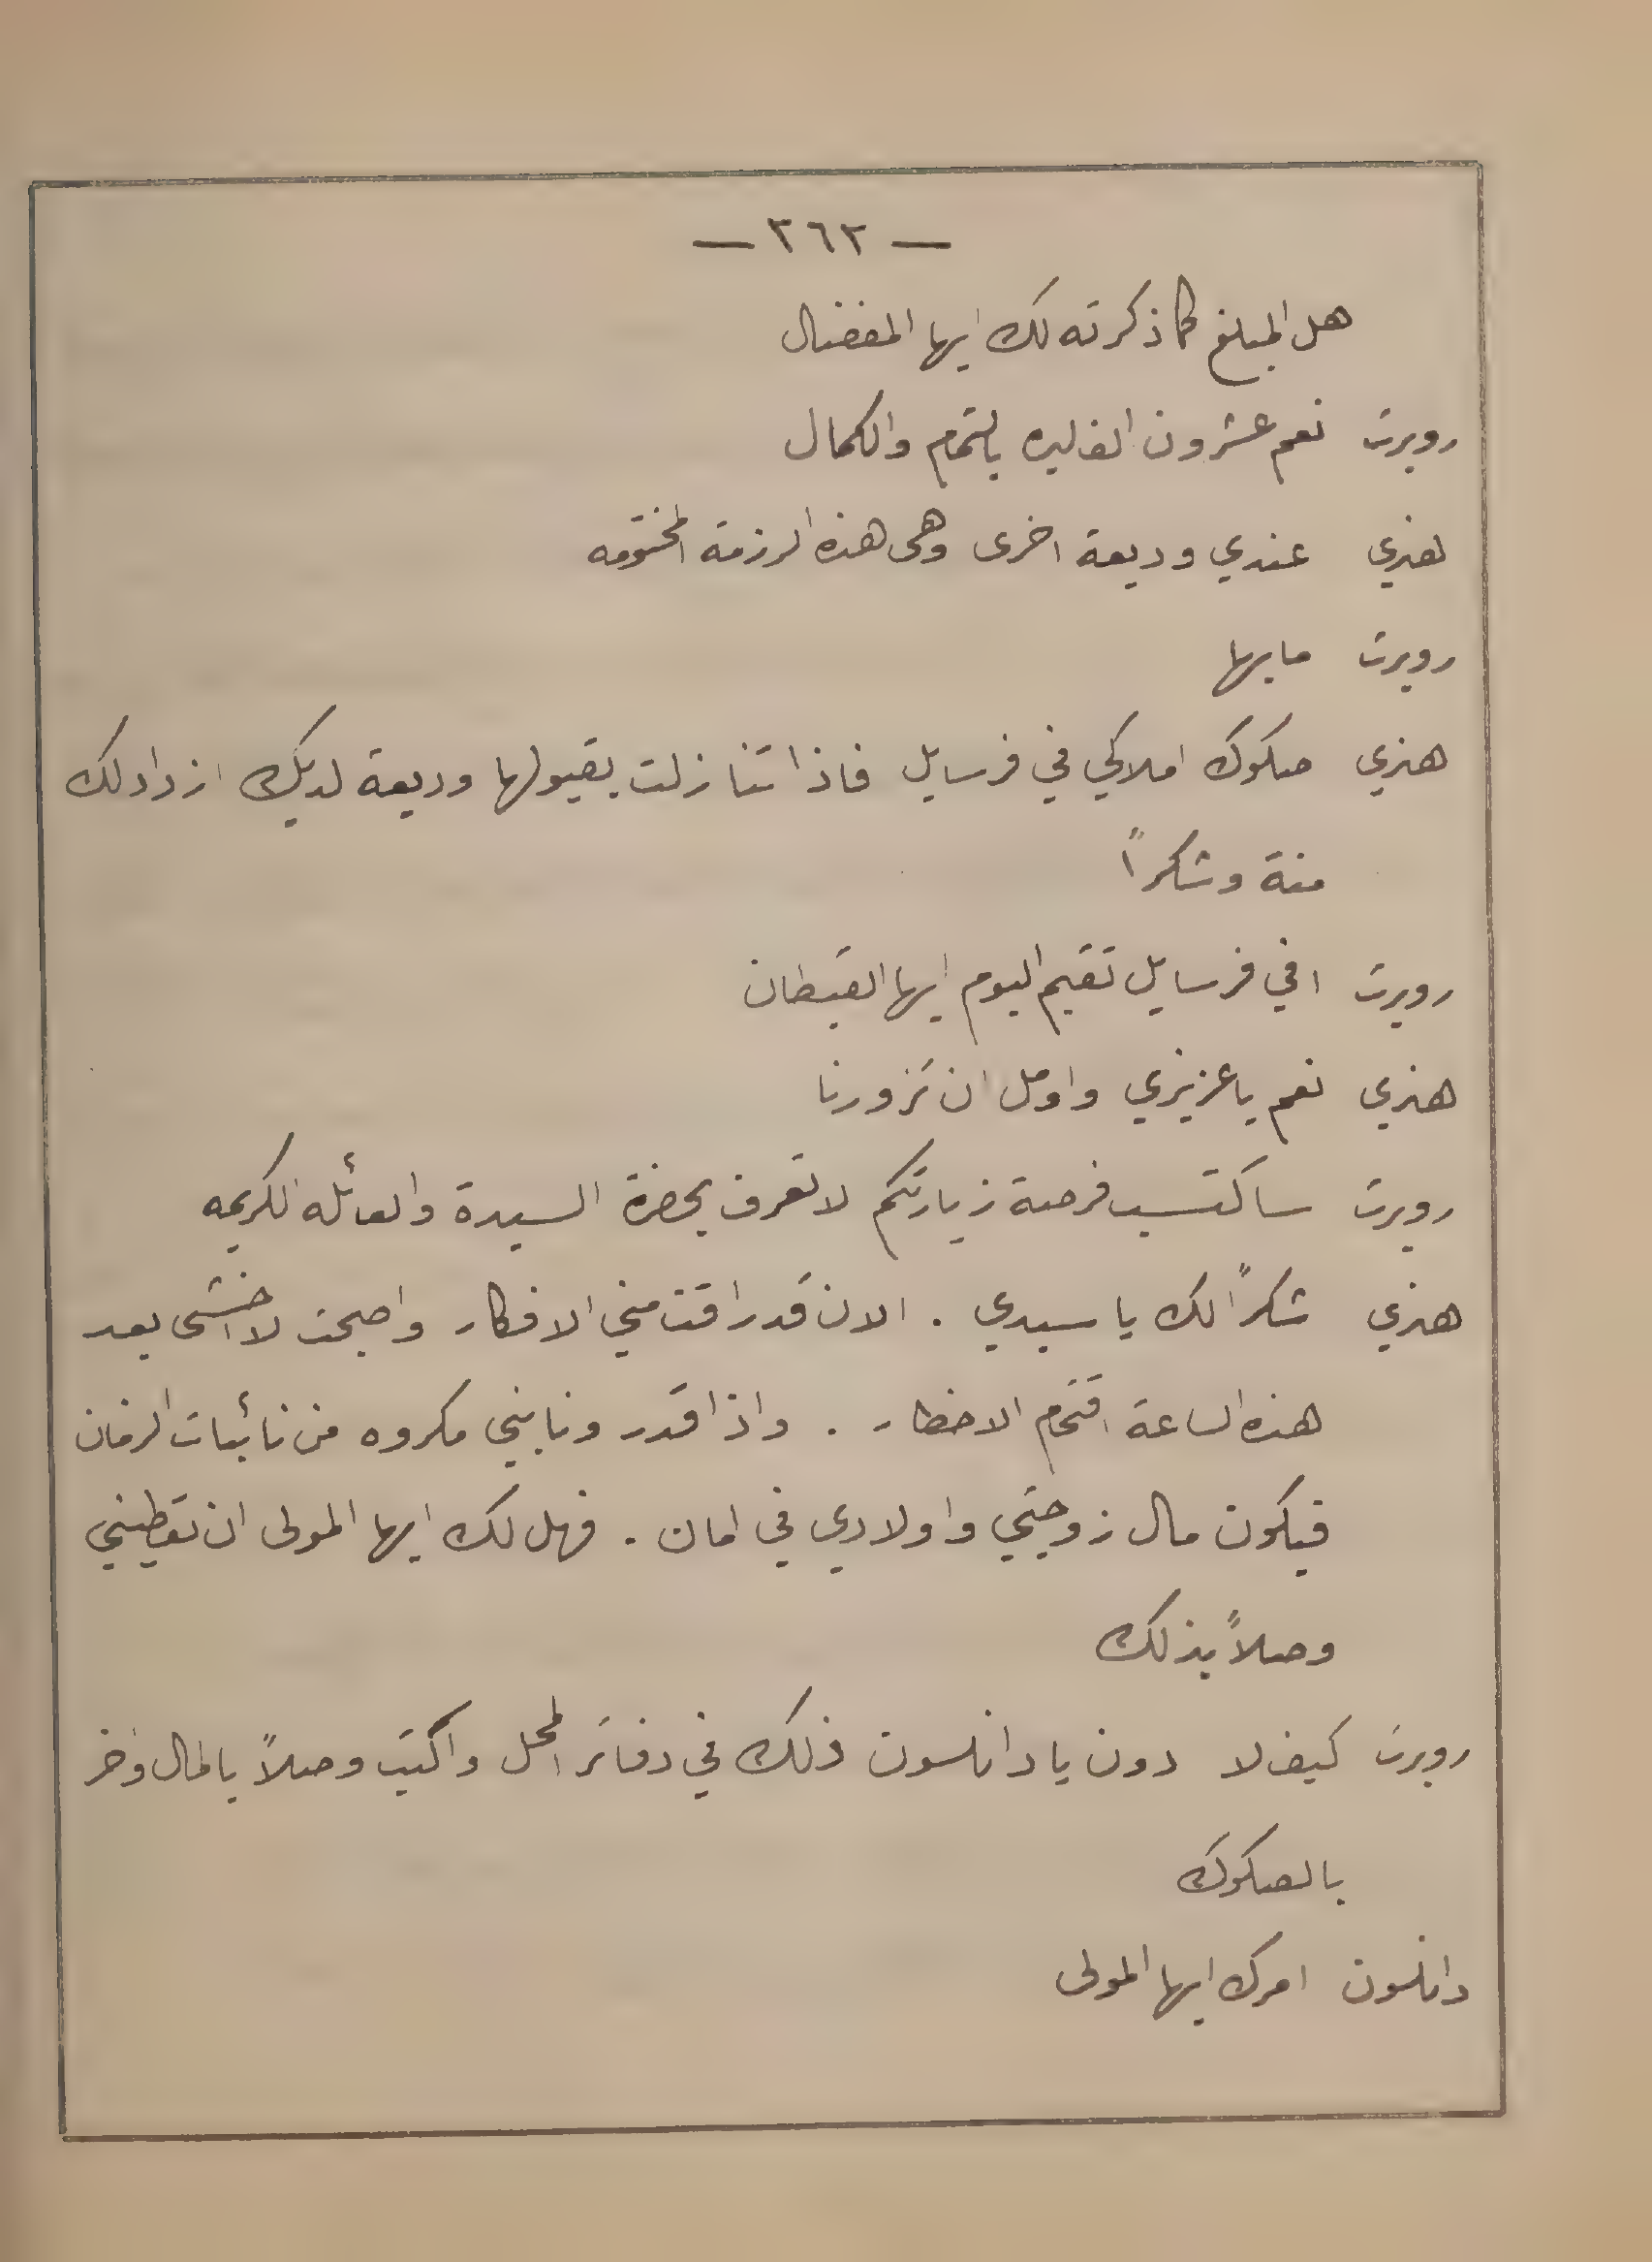 — ٣٦٢ —
هل المبلغ كما ذكرته لك ايها المفضال
روبرت نعم عشرون الف ليره بالتمام والكمال
هنري عندي وديعة اخرى وهى هذه الرزمة المختومه
روبرت ما بها
هنري صكوك املاكي في فرسايل فاذا تنازلت بقبولها وديعة لديك ازداد لك
منة وشكراً
روبرت افي فرسايل تقيم اليوم ايها القبطان
هنري نعم يا عزيزي واومل ان تزورنا
روبرت ساكتسب فرصة زيارتكم لاتعرف بحضرة السيدة والعائله الكريمه
هنري شكراً لك يا سيدي . الان قد راقت مني الافكار واصبحت لا اخشى بعد
هذه الساعة اقتحام الاخطار . واذا قدر ونابني مكروه من نائبات الزمان
فيكون مال زوجتي واولادي في امان . فهل لك ايها المولى ان تعطيني
وصلاً بذلك
روبرت كيف لا دون يا دانلسون ذلك في دفاتر المحل واكتب وصلاً بالمال واخر
بالصكوك
دانلسون امرك ايها المولى